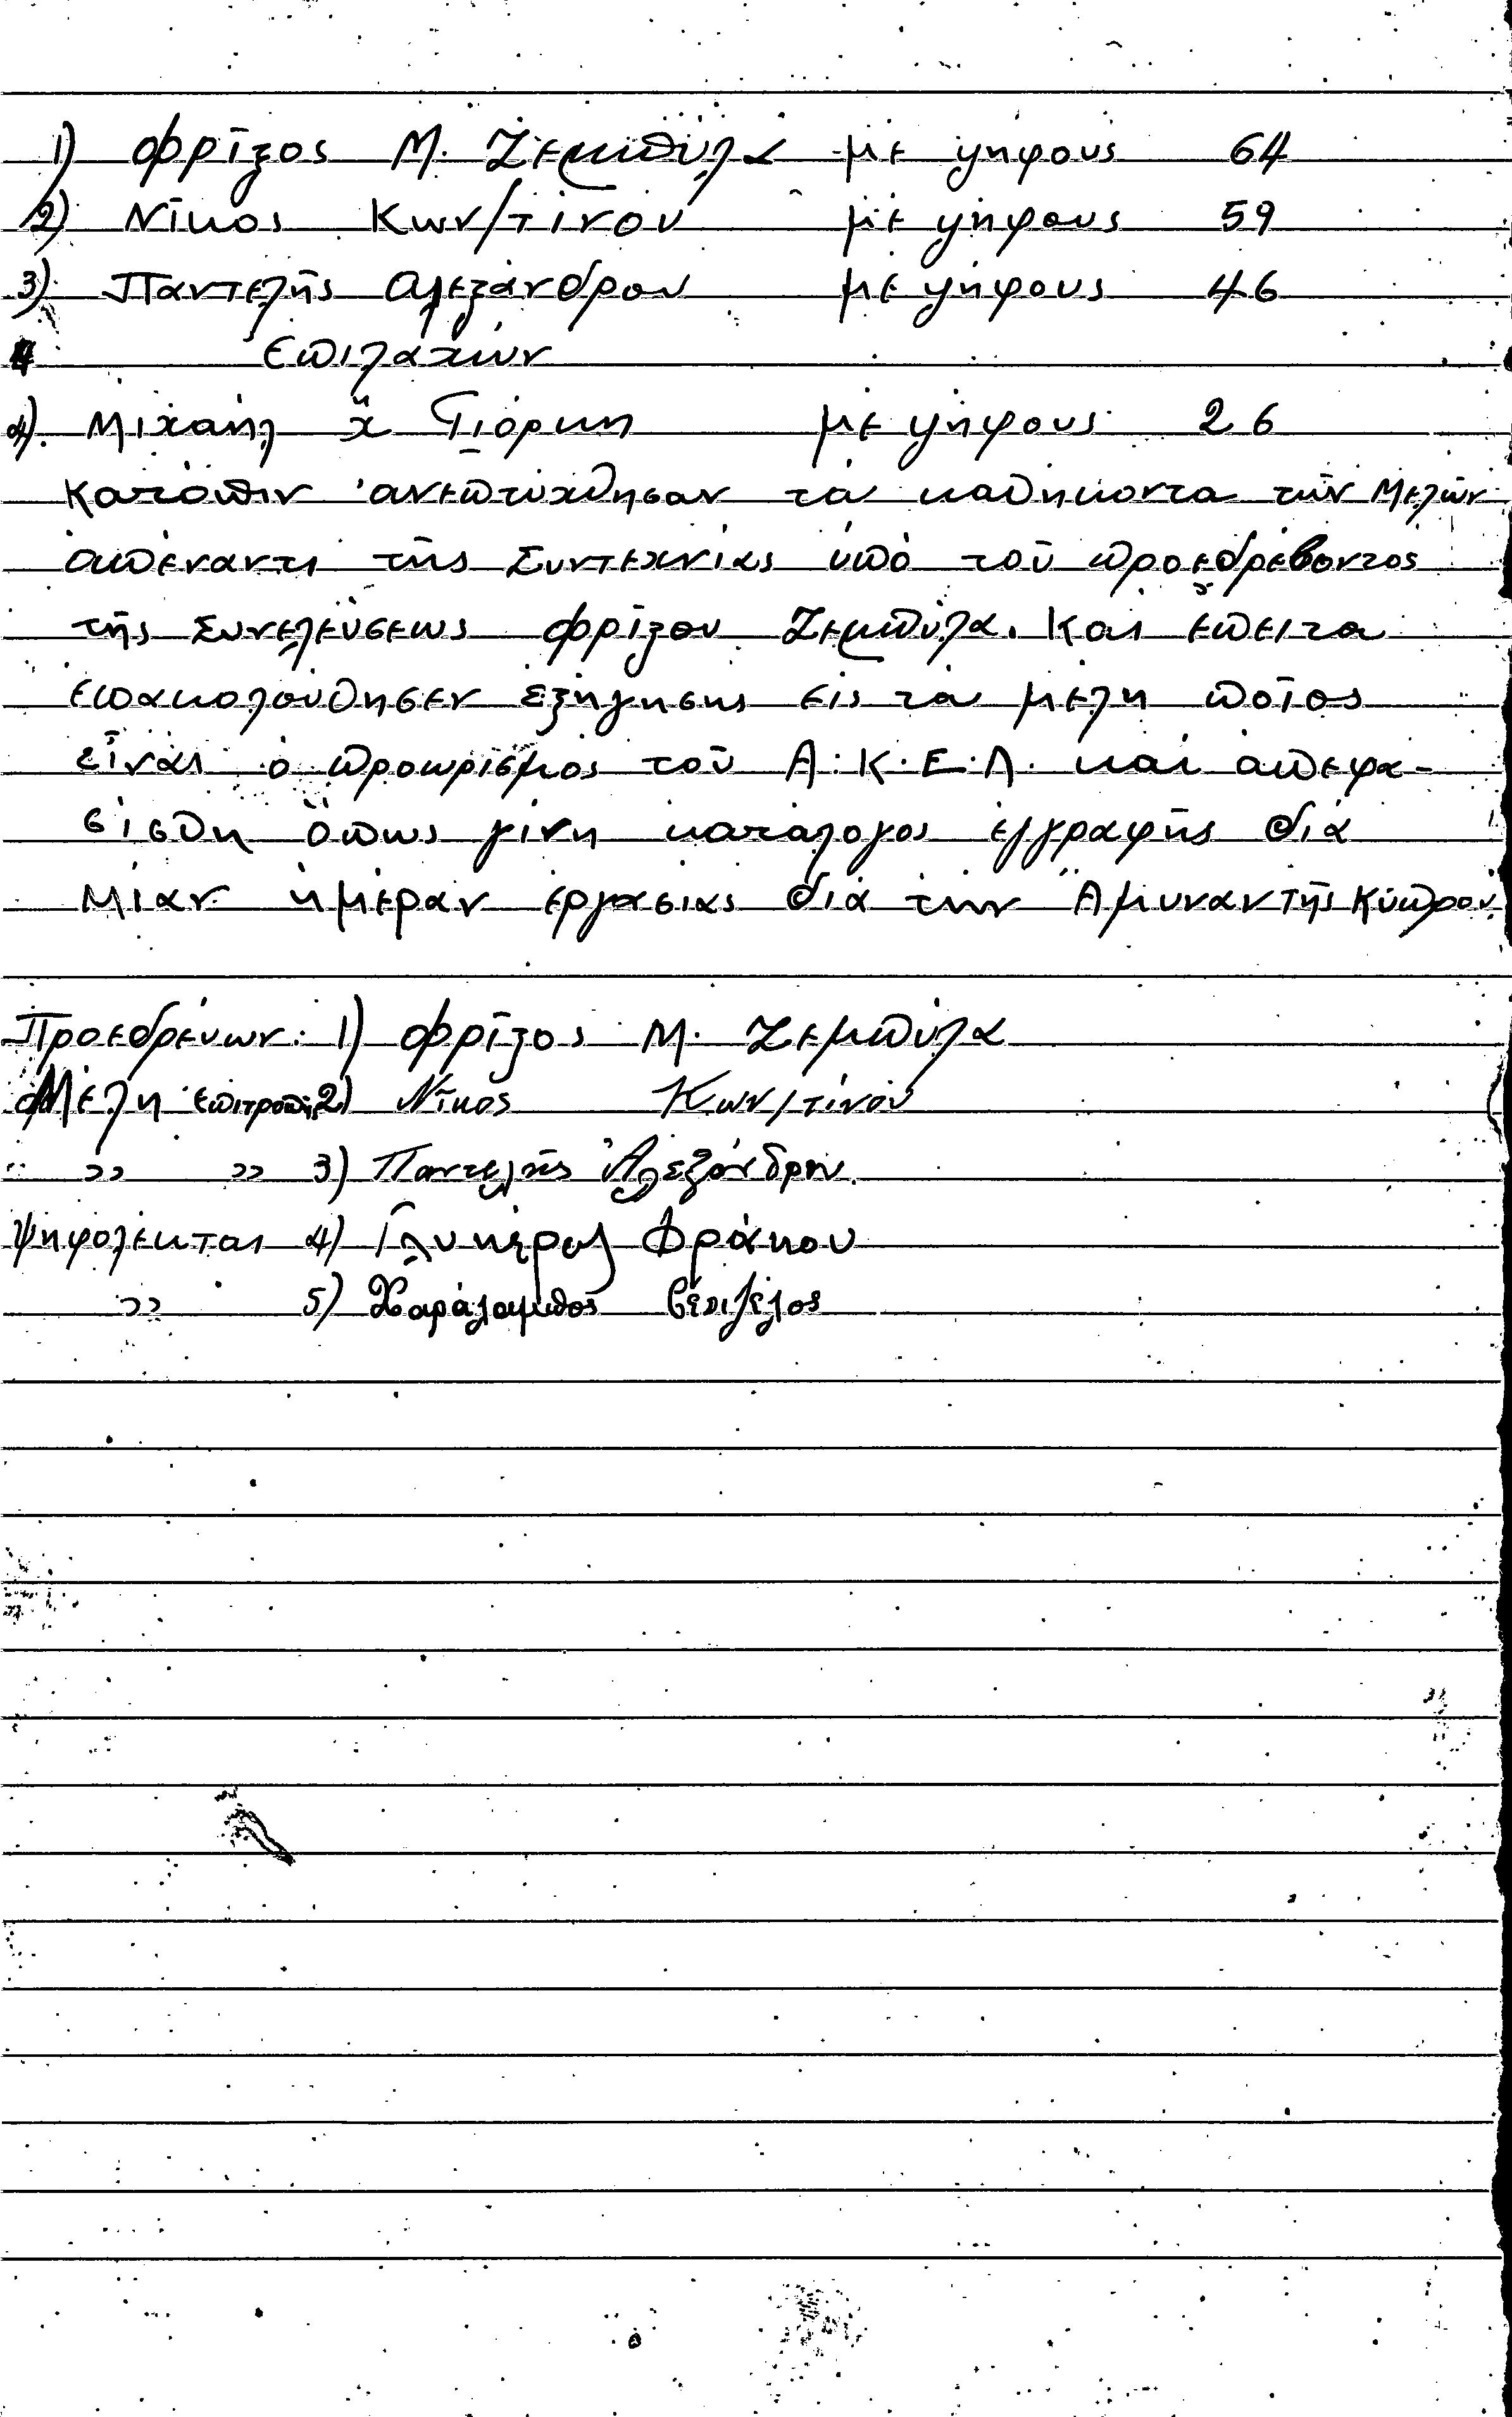 1) Φρῖξος Μ. Ζεμπύλα μὲ ψήφους 64
2) Νῖκος Κων/τίνου μὲ ψήφους 59
3) Παντελῆς Αλεξάνδρου μὲ ψήφους 46
Επιλαχών
4) Μιχαήλ χ" Γιόρκη μὲ ψήφους 26
Κατόπιν ἀνεπτύχθησαν τὰ καθήκοντα τῶν Μελῶν
ἀπέναντι τῆς Συντεχνίας ὑπὸ τοῦ προεδρεύοντος
τῆς Συνελεύσεως Φρίξου Ζεμπύλα. Καὶ ἔπειτα
Επακολούθησεν ἐξήγησης εἰς τὰ μέλη ποῖος
εἶναι ὁ προωρισμος τοῦ Α.Κ.Ε.Λ. καὶ ἀπεφα-
σίσθη ὅπως γίνη κατάλογος ἐγγραφῆς διὰ
Μίαν ἡμέραν ἐργασίας διὰ τὴν Ἄμυναν τῆς Κύπρου
Προεδρεύων: 1) Φρῖξος Μ. Ζεμπύλα
Μέλη Επιτροπῆς 2) Νῖκος Κων/τίνου
» » 3) Παντελῆς Ἀλεξάνδρου.
Ψηφολέκται 4) Γλυκερος Φράκου
» 5) Χαράλαμπος